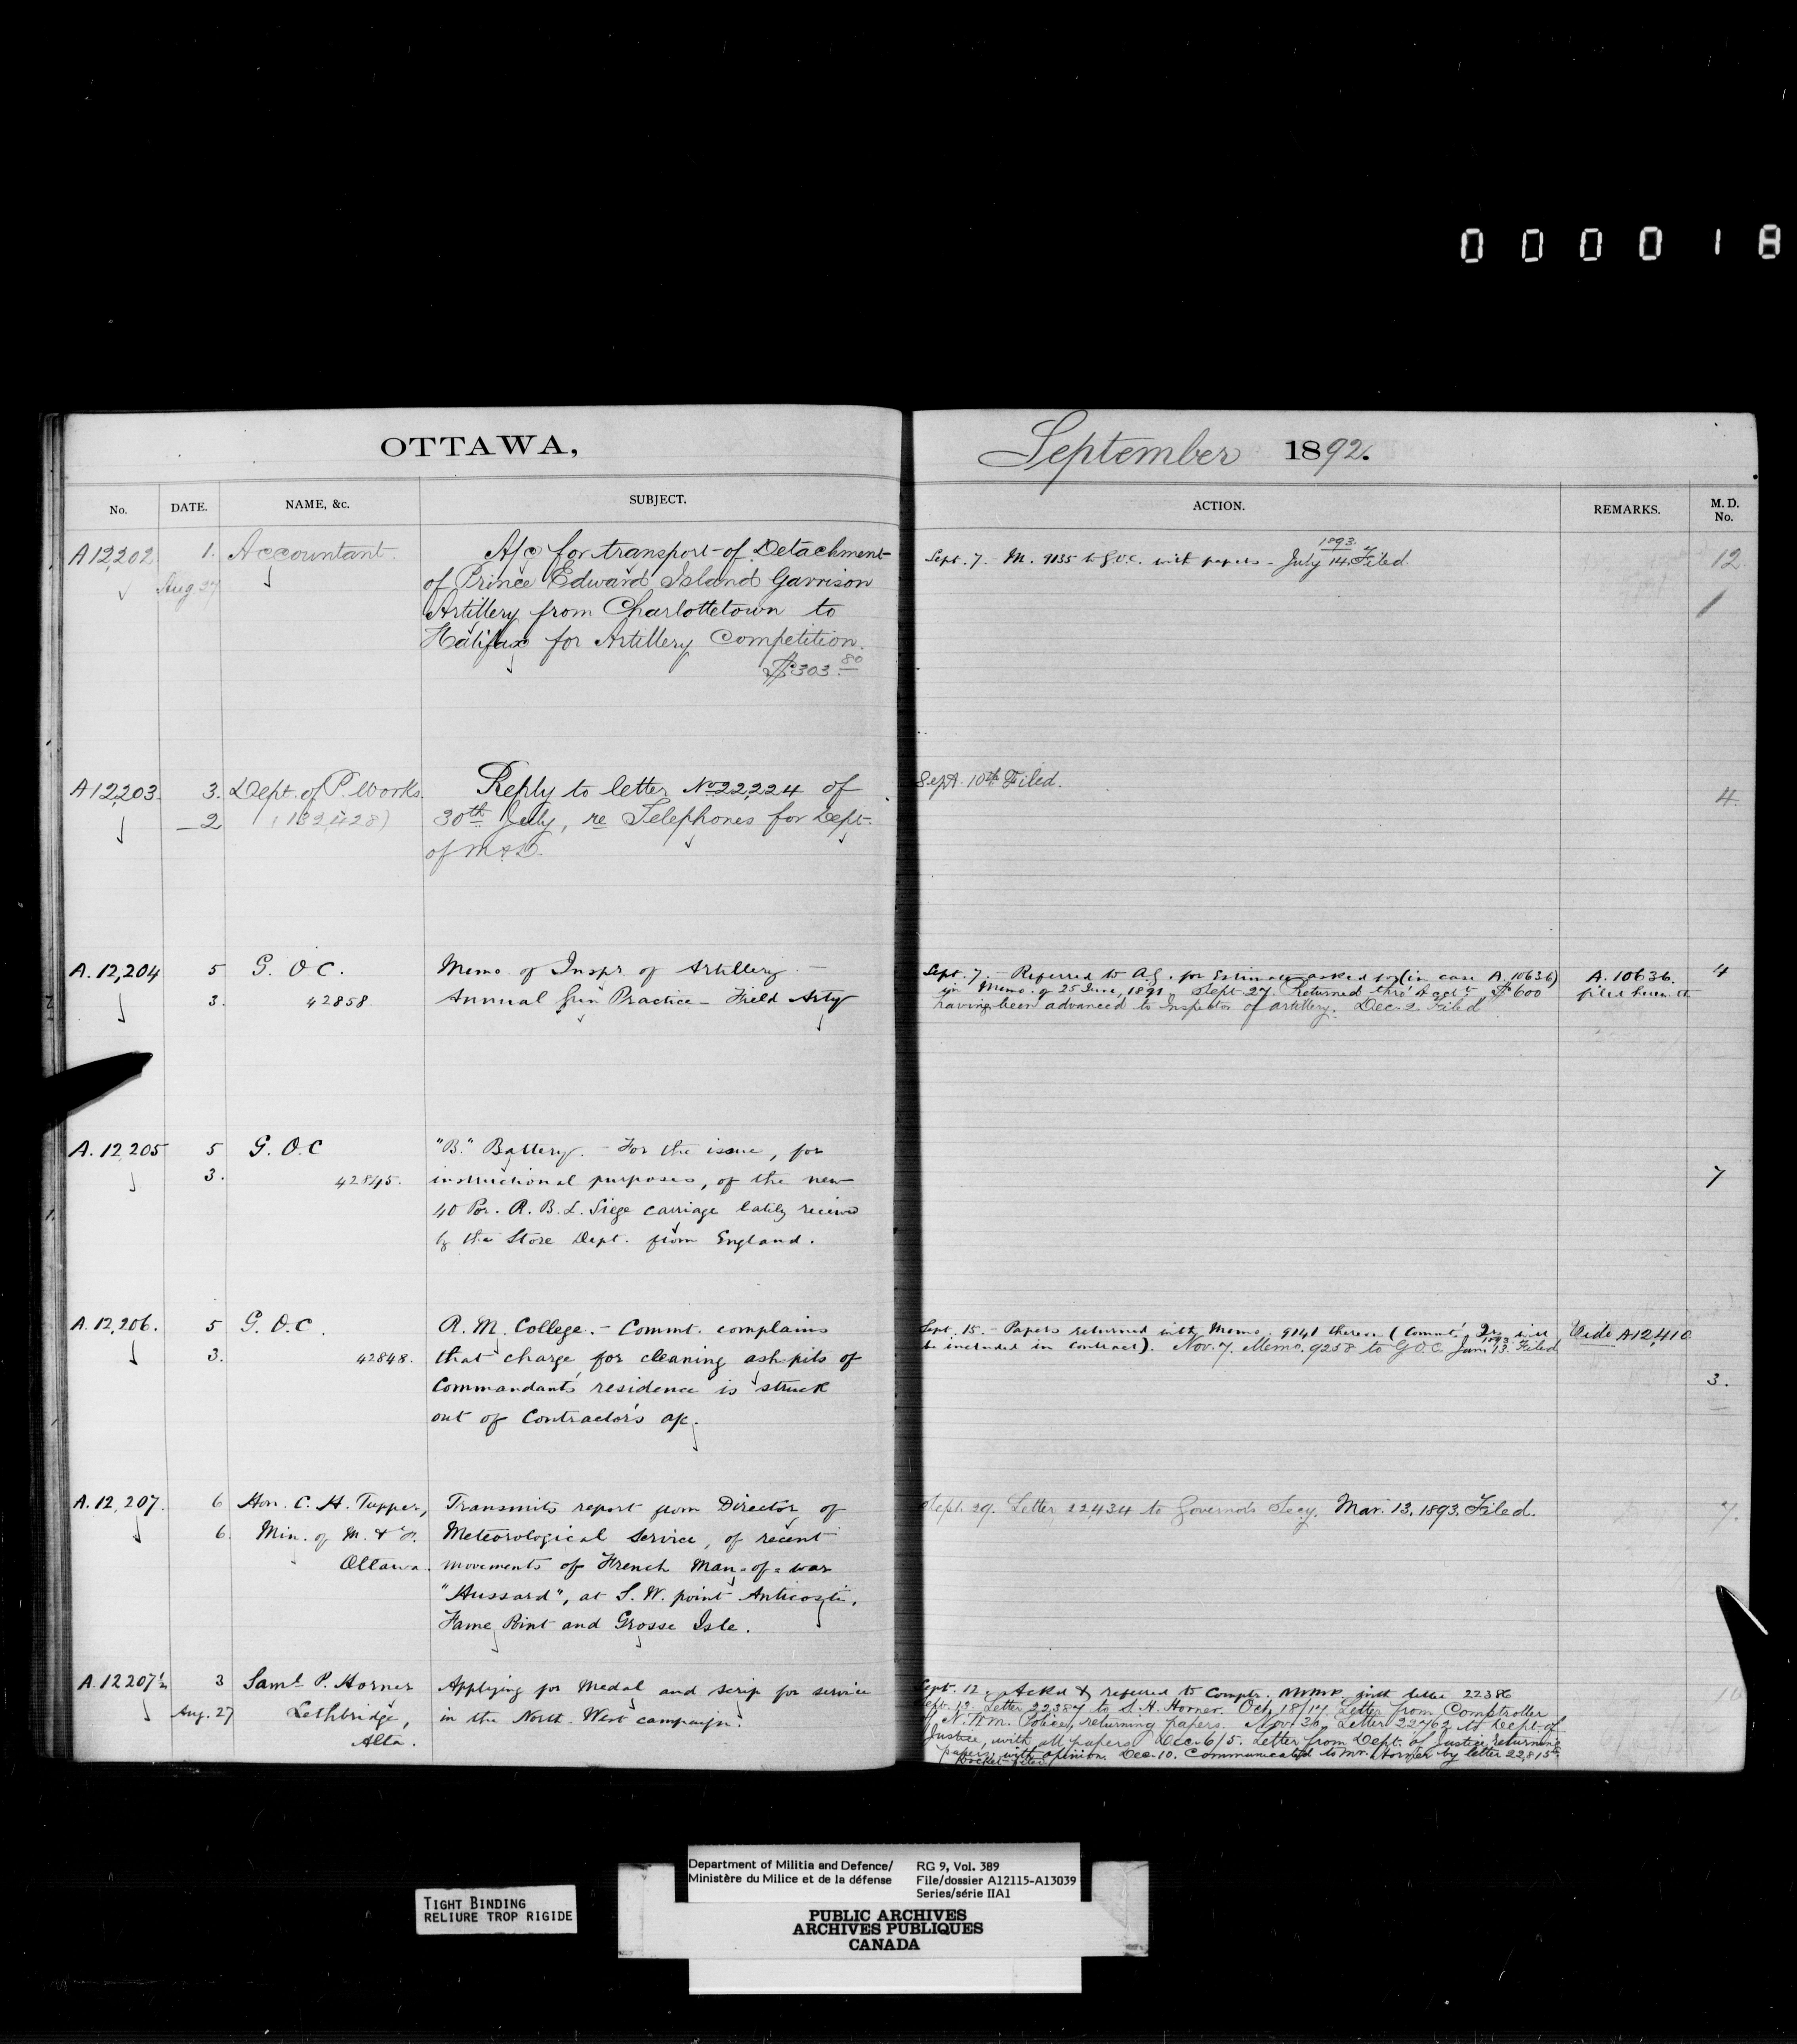 0 0 0 0 1 8
OTTAWA,
No. DATE. NAME, &c. SUBJECT.
A12,202 1. Accountant. A/c for transport of Detachment
Aug 27 of Prince Edward Island Garrison
Artillery from Charlottetown to
Halifax for Artillery Competition.
$303.80
A12,203. 3. Dept. of P. Works. Reply to letter No 22,224 of
2 (132,428) 30th July, re Telephones for Dept.
of M & D.
A. 12,204 5 G. O C. Memo. of Inspr. of Artillery –
3. 42858. Annual Gun Practice – Field Arty
A. 12,205 5 G. O. C "B." Battery. – For the issue, for
3. 42845. instructional purposes, of the new
40 Por. R. B. L. Siege carriage lately received
by the Store Dept. from England.
A. 12,206. 5 G. O. C. R. M. College. – Commt. complains
3. 42848. that charge for cleaning ash-pits of
Commandant's residence is struck
out of Contractor's a/c.
A. 12,207. 6 Hon. C. H. Tupper, Transmits report from Director of
6. Min. of M. & F. Meteorological Service, of recent
Ottawa. movements of French Man-of-war
"Hussard", at S. W. point Anticosti,
Fame Point and Grosse Isle.
A. 12207½ 3 Saml P. Horner Applying for Medal and scrip for service
Aug. 27 Lethbridge, in the North-West campaign.
Alta.
September 1892.
ACTION. REMARKS. M. D. No.
1893.
Sept. 7. – M. 9135 to G.O.C. with papers – July 14. Filed. 12
1
Sept. 10th Filed.
4.
Sept. 7. – Referred to A.G. for Estimate asked for (in case A. 10636) A. 10636. 4
in Memo. of 25 June, 1891. Sept 27. Returned thro' $600 filed herewith
having been advanced to Inspector of artillery. Dec. 2 Filed
7
Sept. 15. – Papers returned with Memo. 9141 thereon (Commt's will Vide A12,410
1893.
be included in contract). Nov. 7. Memo. 9258 to G.O.C. Jan. 13. Filed
3.
Sept. 29. Letter 22,434 to Governor's Secy. Mar. 13. 1893. Filed. 7.
Sept. 12. Ackd & referred to Comptr. NWMP. with letter 22386
Sept. 12. Letter 22387 to S. H. Horner. Oct. 18/17. Letter from Comptroller
N. W. M. Police, returning papers. Nov. 30, Letter 22762 to Dept. of
Justice, with all papers. Dec. 6/5. Letter from Dept. of Justice, returning
papers with opinion. Dec. 10. Communicated to Mr. Horner by letter 22,815.
Docket filed
TIGHT BINDING
RELIURE TROP RIGIDE
Department of Militia and Defence/
Ministère du Milice et de la défense
RG 9, Vol. 389
File/dossier A12115-A13039
Series/série IIA1
PUBLIC ARCHIVES
ARCHIVES PUBLIQUES
CANADA